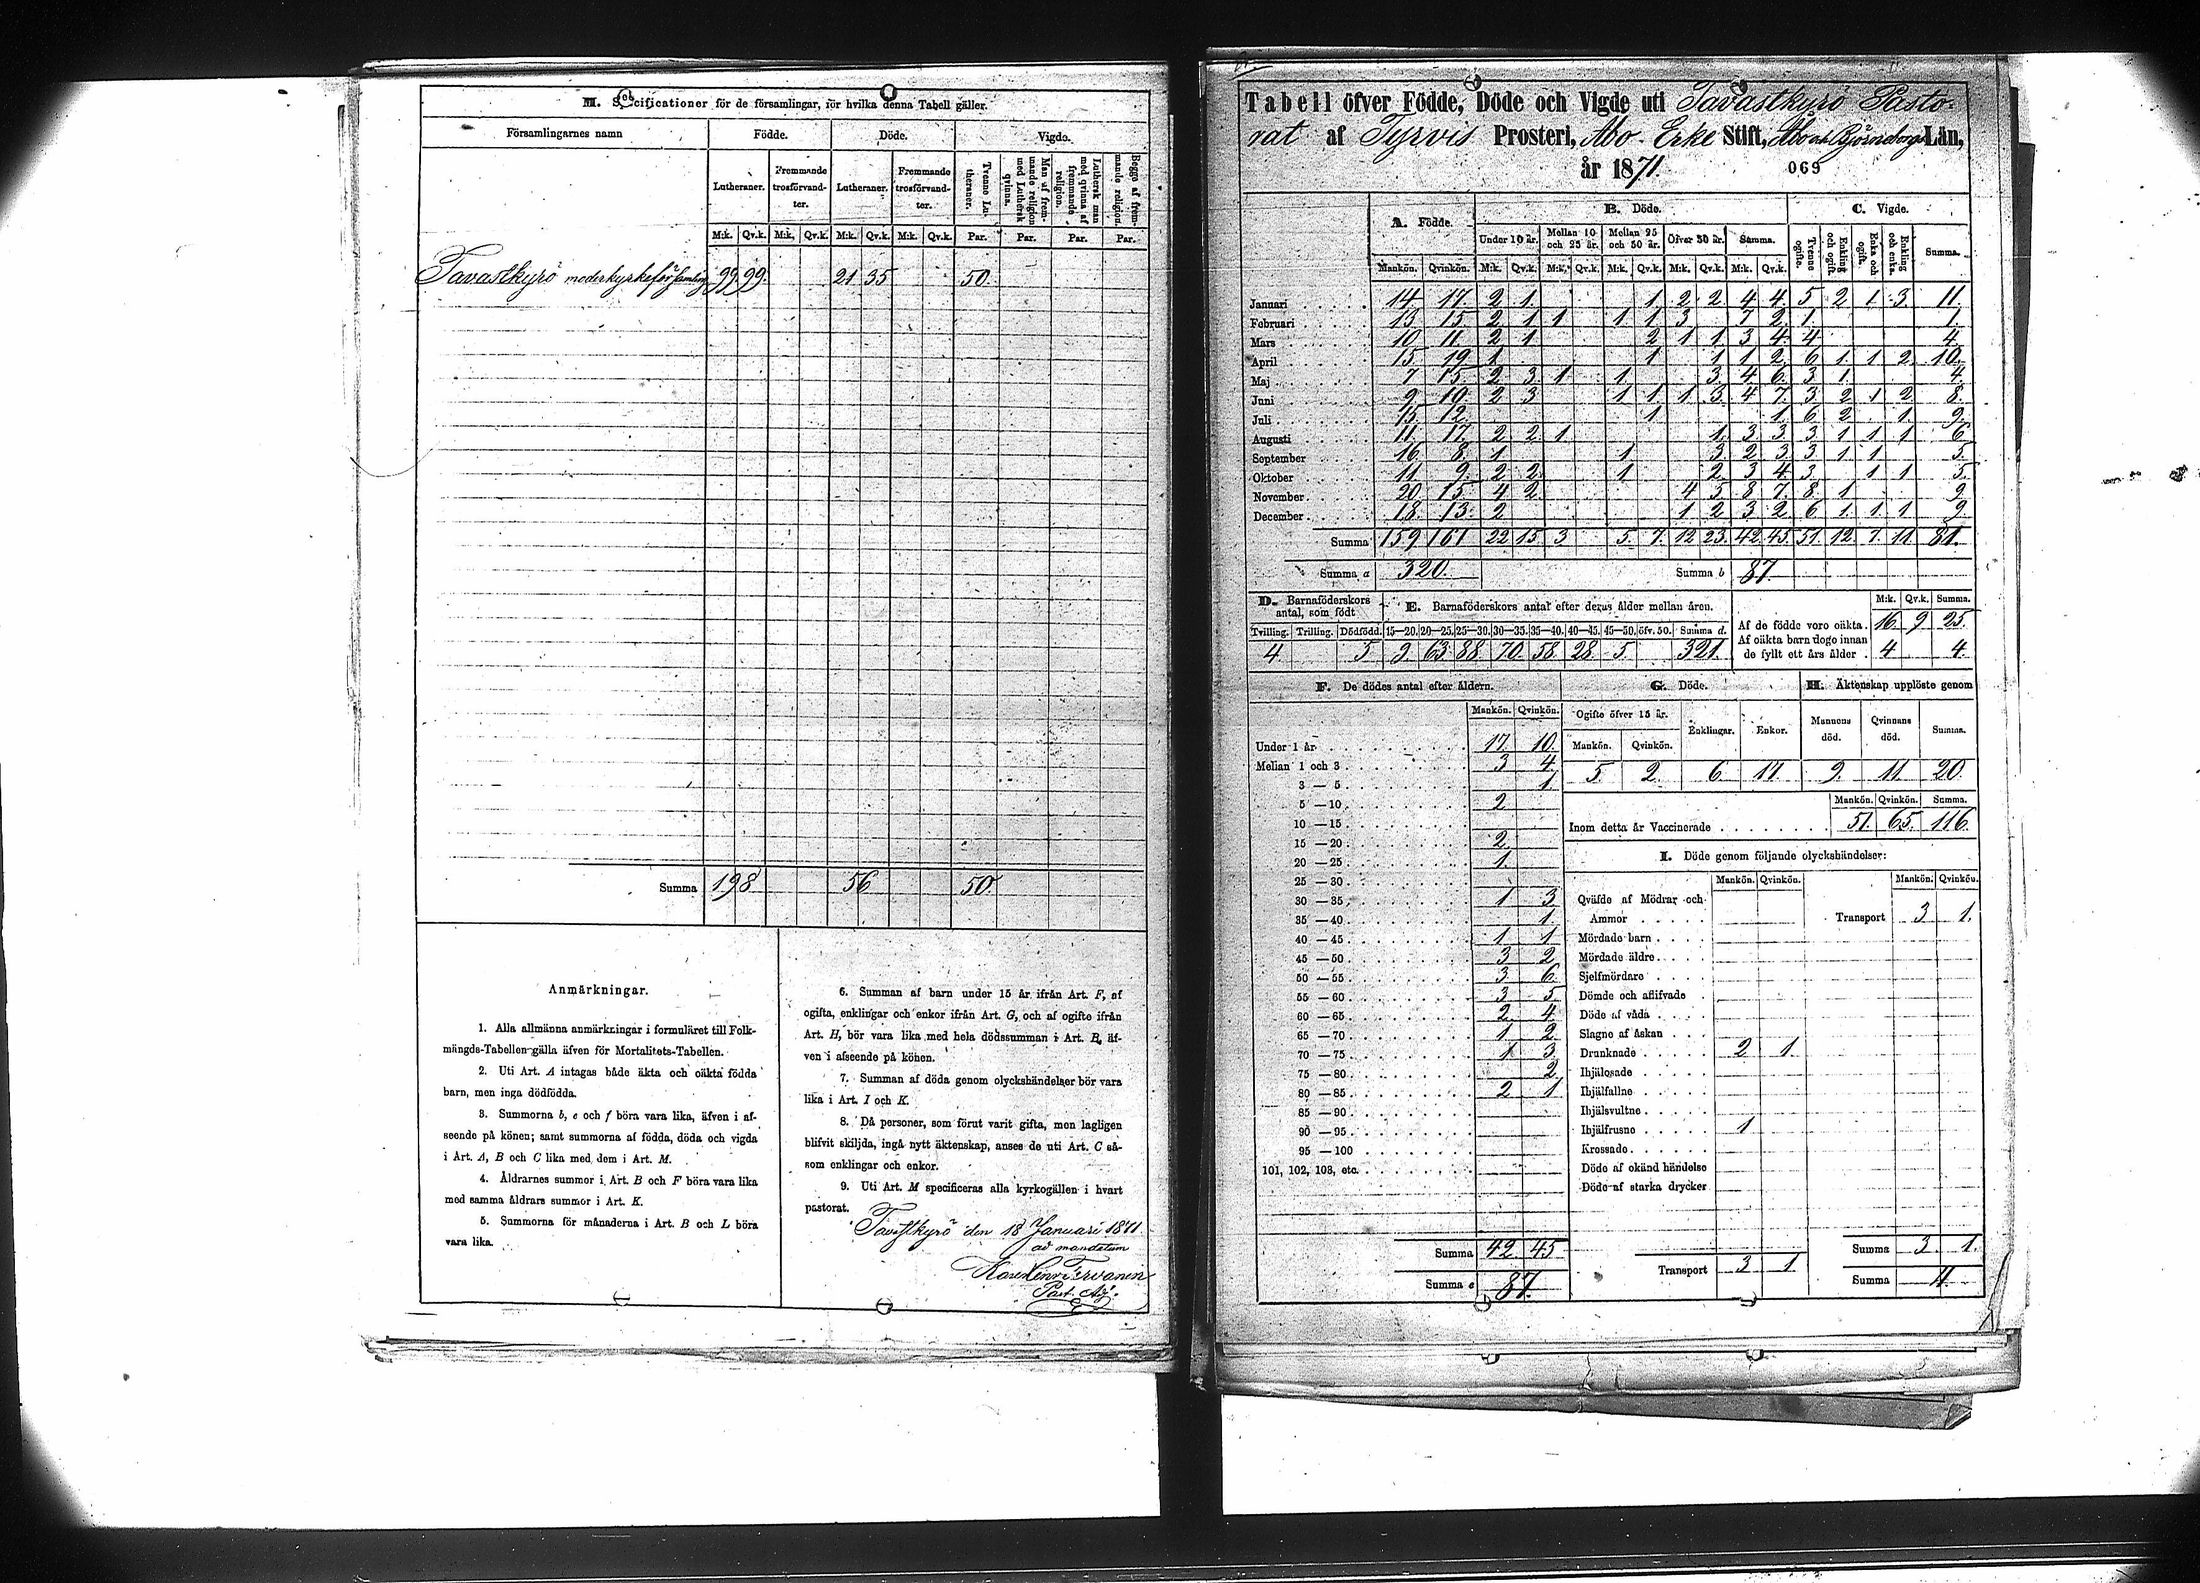 M. Specificationer för de församlingar, för hvilka denna Tabell gäller.
Församlingarnes namn Födde. Döde. Vigde.
Lutheraner. Fremmande trosförvandter. Lutheraner. Fremmande trosförvandter. Tvenne Lutheraner. Man af fremmande religion med Luthersk qvinna. Luthersk man med qvinna af fremmande religion. Begge af fremmande religion.
M:k. Qv.k. M:k. Qv.k. M:k. Qv.k. M:k. Qv.k. Par. Par. Par. Par.
Tavastkyrö moderkyrkoförsamling 99. 99. 21 35 50.
Summa 198 56 50.
Anmärkningar.
1. Alla allmänna anmärkningar i formuläret till Folk-
mängds-Tabellen gälla äfven för Mortalitets-Tabellen.
2. Uti Art. A intagas både äkta och oäkta födda
barn, men inga dödfödda.
3. Summorna b, e och f böra vara lika, äfven i af-
seende på könen; samt summorna af födda, döda och vigda
i Art. A, B och C lika med dem i Art. M.
4. Åldrarnes summor i Art. B och F böra vara lika
med samma åldrars summor i Art. K.
5. Summorna för månaderna i Art. B och L böra
vara lika.
6. Summan af barn under 15 år ifrån Art. F, af
ogifta, enklingar och enkor ifrån Art. G, och af ogifte ifrån
Art. H, bör vara lika med hela dödssumman i Art. B, äf-
ven i afseende på könen.
7. Summan af döda genom olyckshändelser bör vara
lika i Art. I och K.
8. Då personer, som förut varit gifta, men lagligen
blifvit skiljda, ingå nytt äktenskap, anses de uti Art. C så-
som enklingar och enkor.
9. Uti Art. M specificeras alla kyrkogällen i hvart
pastorat.
Tavastkyrö den 18 Januari 1871
ad mandatum
Past. Adj.
Tabell öfver Födde, Döde och Vigde uti Tavastkyrö Pasto-
rat af Tyrvis Prosteri, Åbo Erke Stift, Åbo och Björneborgs Län,
år 1871. 069
A. Födde. B. Döde. C. Vigde.
Under 10 år. Mellan 10 och 25 år. Mellan 25 och 50 år. Öfver 50 år. Summa. Tvenne ogifte. Enkling och ogift. Enka och ogift. Enkling och enka. Summa.
Mankön. Qvinkön. M:k. Qv.k. M:k. Qv.k. M:k. Qv.k. M:k. Qv.k. M:k. Qv.k.
Januari 14 17 2 1 1 2 2 4 4 5 2 1 3 11.
Februari 13 15 2 1 1 1 1 3 7 2 1 1.
Mars 10 11 2 1 2 1 1 3 4 4 4.
April 15 19 1 1 1 1 2 6 1 1 2 10.
Maj 7 15 2 3 1 1 3 4 6 3 1 4
Juni 9 10 2 3 1 1 1 3 4 7 3 2 1 2 8.
Juli 15 12 1 1 6 2 1 9.
Augusti 11 17 2 2 1 1 3 3 3 1 1 1 6
September 16 8 1 1 3 2 3 3 1 1 5.
Oktober 11 9 2 2 1 2 3 4 3 1 1 5.
November 20 15 4 2 4 5 8 7 8 1 9
December 18 13 2 1 2 3 2 6 1 1 1 9
Summa 159 161 22 15 3 5 7 12 23 42 45 51 12 7 11 81.
Summa a 320. Summa b 87.
D. Barnaföderskors antal, som födt
Tvilling. Trilling. Dödfödd.
4 5
E. Barnaföderskors antal efter deras ålder mellan åren.
15—20. 20—25. 25—30. 30—35. 35—40. 40—45. 45—50. öfv. 50. Summa d.
9 63 88 70 58 28 5 321.
M:k. Qv.k. Summa.
Af de födde voro oäkta. 16. 9 25.
Af oäkta barn dogo innan
de fyllt ett års ålder 4 4.
F. De dödes antal efter åldern.
Mankön. Qvinkön.
Under 1 år 17. 10.
Mellan 1 och 3 3 4
3 — 5 1
5 — 10 2
10 — 15
15 — 20 2
20 — 25 1
25 — 30
30 — 35 1 3
35 — 40 1
40 — 45 1 1
45 — 50 3 2
50 — 55 3 6
55 — 60 3 5
60 — 65 2 4
65 — 70 1 2
70 — 75 1 3
75 — 80 2
80 — 85 2 1
85 — 90
90 — 95
95 — 100
101, 102, 103, etc.
Summa 42 45
Summa e 87.
G. Döde.
Ogifte öfver 15 år. Enklingar. Enkor.
Mankön. Qvinkön.
5 2 6 17
H. Äktenskap upplöste genom
Mannens död. Qvinnans död. Summa.
9. 11 20.
Mankön. Qvinkön. Summa.
Inom detta år Vaccinerade 51. 65. 116
I. Döde genom följande olyckshändelser:
Mankön. Qvinkön. Mankön. Qvinkön.
Qväfde af Mödrar och
Ammor Transport 3 1.
Mördade barn
Mördade äldre
Sjelfmördare
Dömde och aflifvade
Döde af våda
Slagne af åskan
Drunknade 2 1.
Ihjälosade
Ihjälfallne
Ihjälsvultne
Ihjälfrusne 1
Krossade
Döde af okänd händelse
Döde af starka drycker
Transport 3 1
Summa 3 1.
Summa 4.